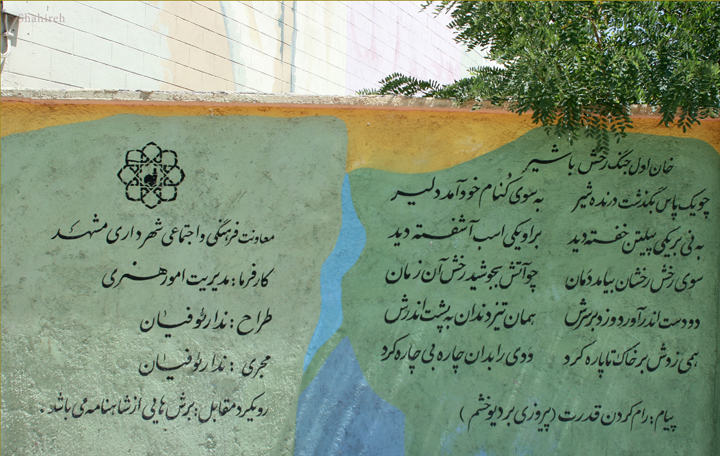 Shahireh
خان اول جنگ رخش با شیر
چو یک پاس بگذشت درنده شیر به سوی کُنام خود آمد دلیر
به نی بر یکی پیلتن خفته دید بر او یکی اسب آشفته دید
سوی رخش رخشان بیامد دمان چو آتش بجوشید رخش آن زمان
دو دست اندر آورد و زد بر سرش همان تیز دندان به پشت اندرش
همی زدش بر خاک تا پاره کرد ددی را بدان چاره بی چاره کرد
پیام: رام کردن قدرت (پیروزی بر دیو خشم)
معاونت فرهنگی و اجتماعی شهرداری مشهد
کارفرما: مدیریت امور هنری
طراح: ندا رئوفیان
مجری: ندا رئوفیان
رویکرد مقابل: برش هایی از شاهنامه می باشد.